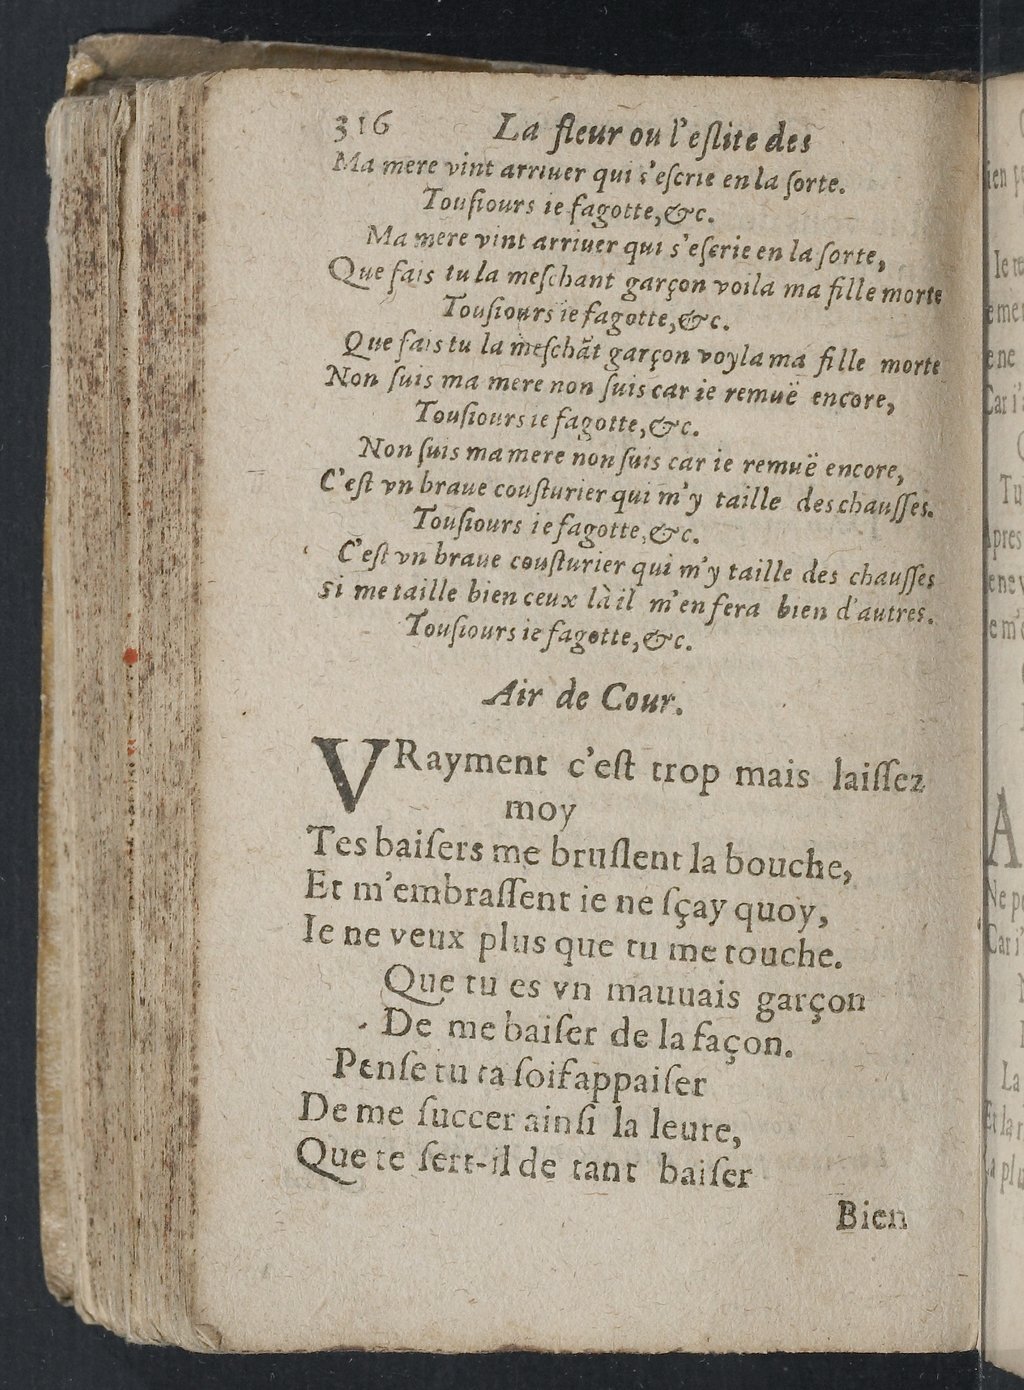 316 La fleur ou l'eſlite des
Ma mere vint arriuer qui s'eſcrie en la ſorte.
Touſiours ie fagotte, &c.
Ma mere vint arriuer qui s'eſcrie en la ſorte,
Que fais tu la meſchant garçon voila ma fille morte
Touſiours ie fagotte, &c.
Que fais tu la meſchãt garçon voyla ma fille morte
Non ſuis ma mere non ſuis car ie remuë encore,
Touſiours ie fagotte, &c.
Non ſuis ma mere non ſuis car ie remuë encore,
C'eſt vn braue couſturier qui m'y taille des chauſſes.
Touſiours ie fagotte, &c.
C'eſt vn braue couſturier qui m'y taille des chauſſes
Si me taille bien ceux là il m'en fera bien d'autres.
Touſiours ie fagotte, &c.
Air de Cour.
VRayment c'eſt trop mais laiſſez
moy
Tes baiſers me bruſlent la bouche,
Et m'embraſſent ie ne ſçay quoy,
Ie ne veux plus que tu me touche.
Que tu es vn mauuais garçon
De me baiſer de la façon.
Penſe tu ta ſoif appaiſer
De me ſuccer ainſi la leure,
Que te ſert-il de tant baiſer
Bien